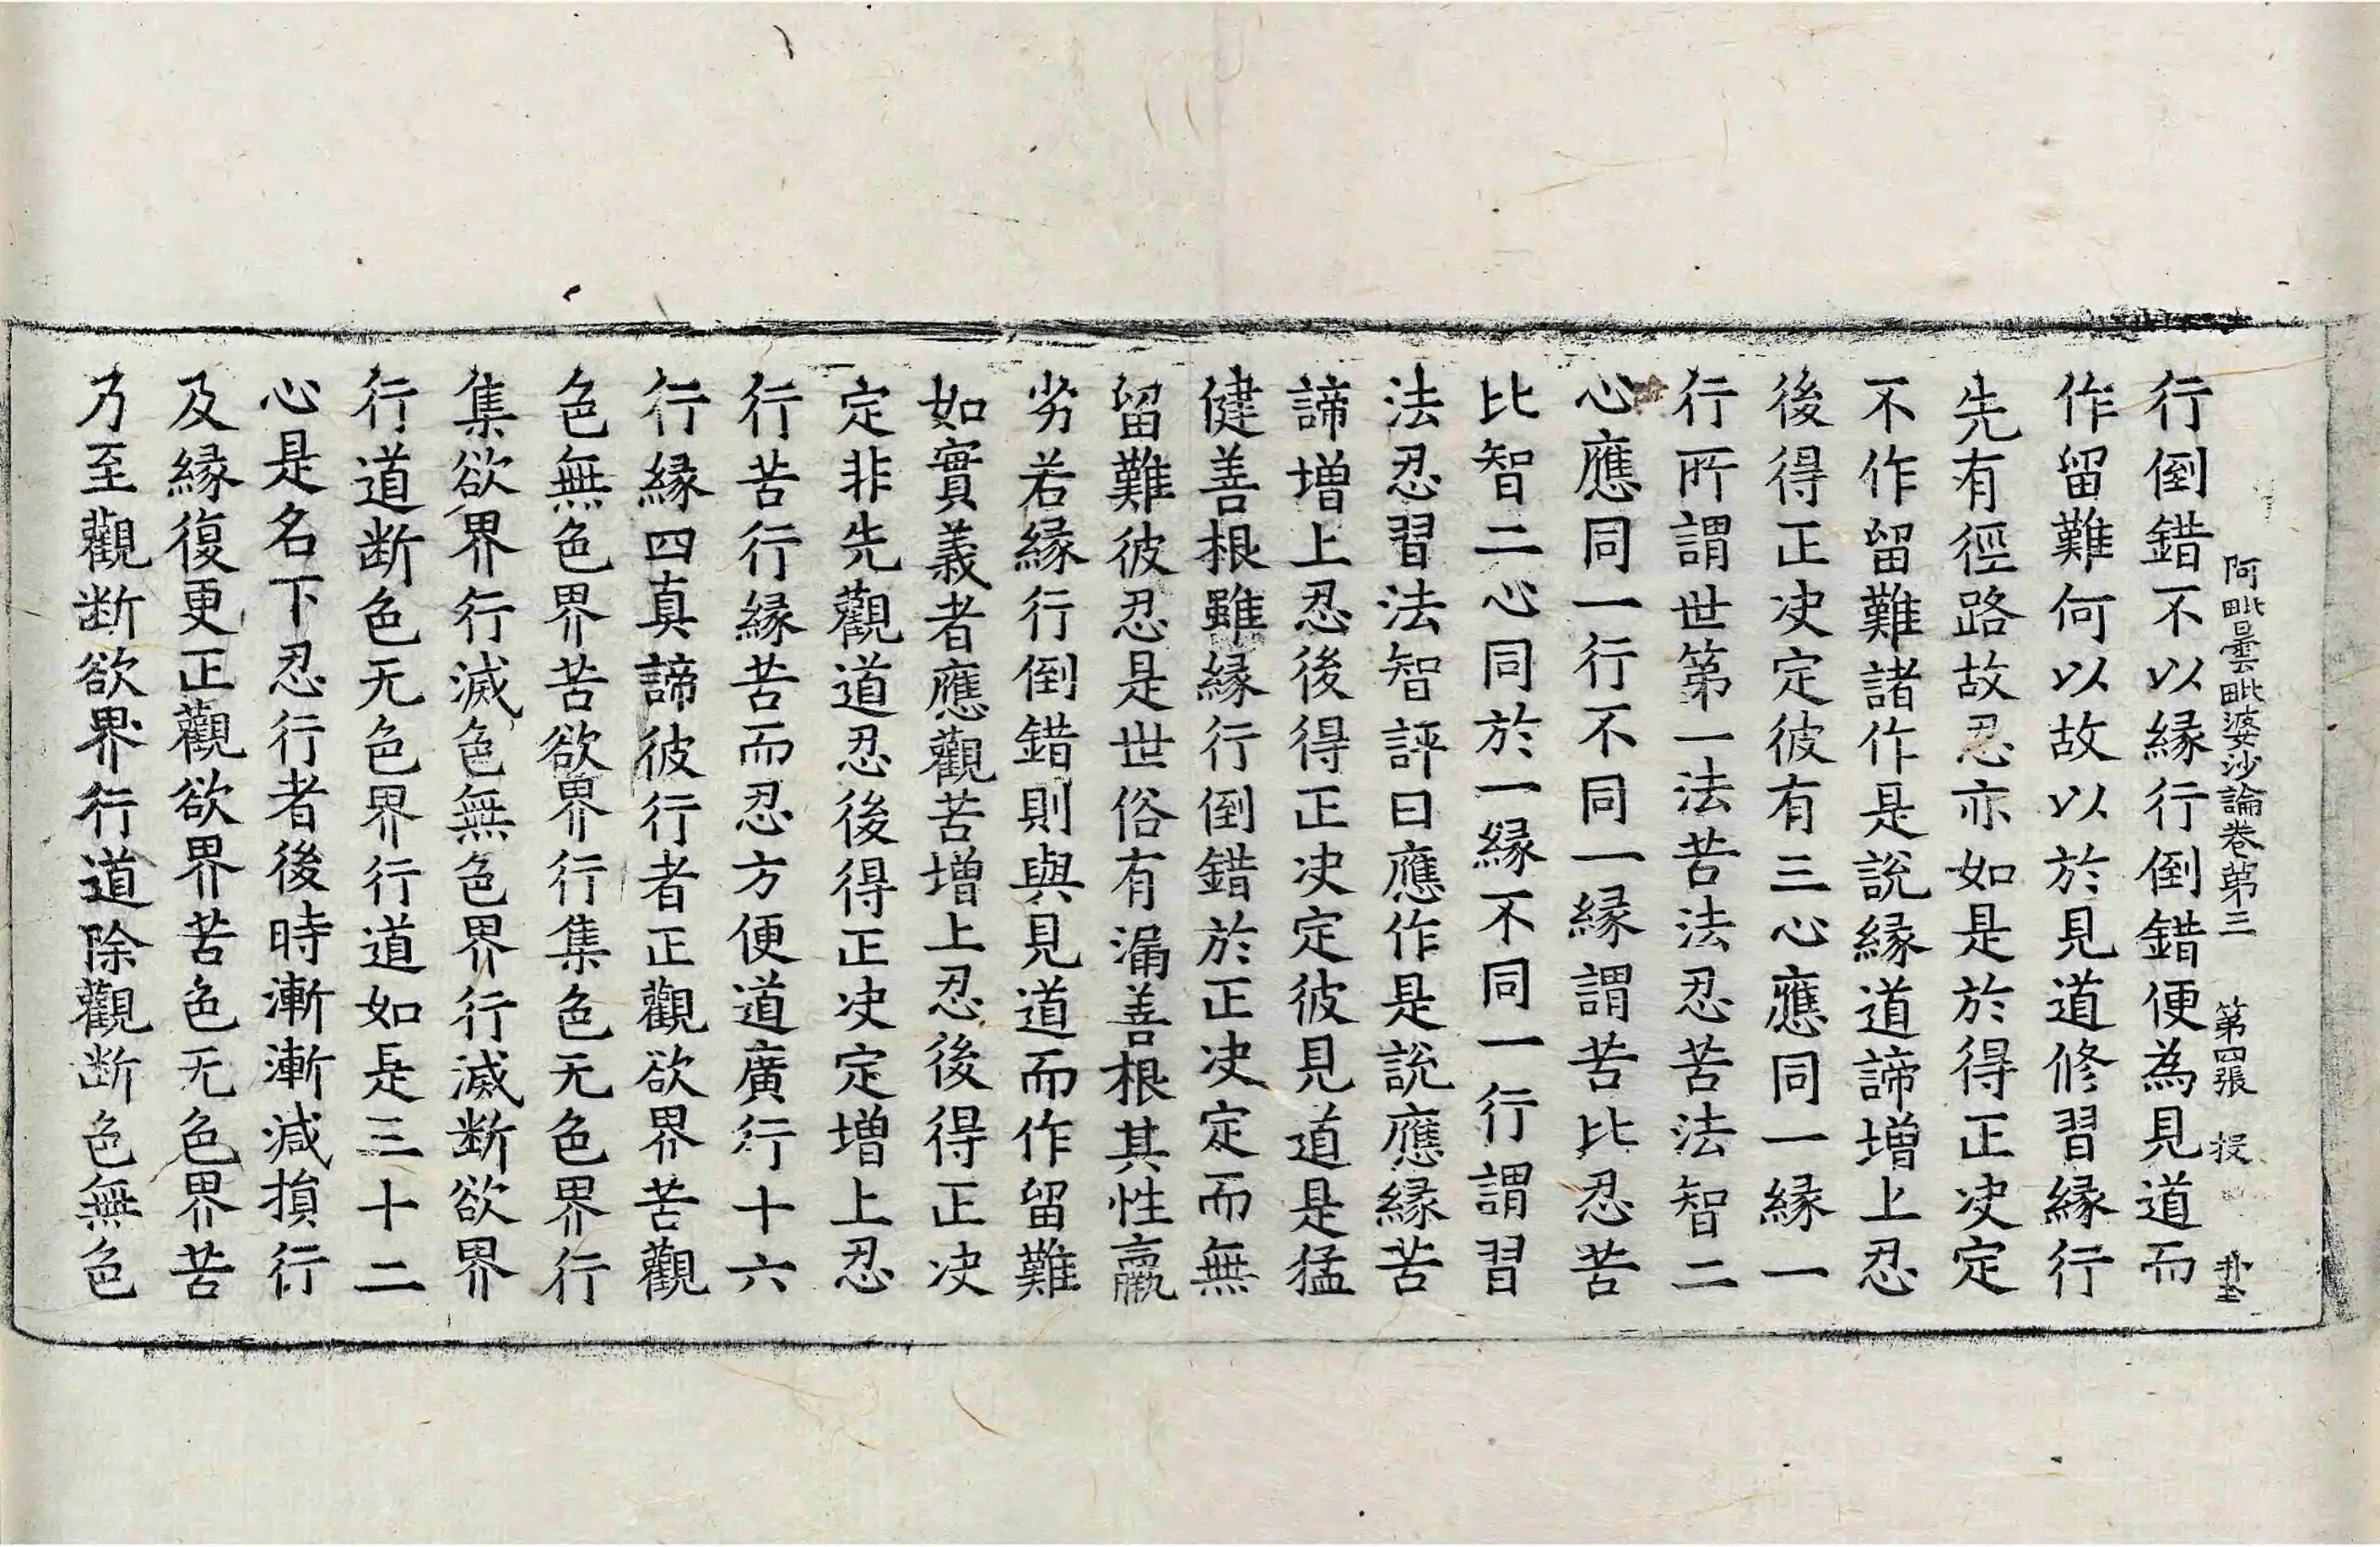 阿毗曇毗婆沙論卷第三 第四張 投
行倒錯不以緣行倒錯便為見道而
作留難何以故以於見道修習緣行
先有徑路故忍亦如是於得正决定
不作留難諸作是說緣道諦增上忍
後得正决定彼有三心應同一緣一
行所謂世第一法苦法忍苦法智二
心應同一行不同一緣謂苦比忍苦
比智二心同於一緣不同一行謂習
法忍習法智評曰應作是說應緣苦
諦增上忍後得正决定彼見道是猛
健善根雖緣行倒錯於正决定而無
留難彼忍是世俗有漏善根其性羸
劣若緣行倒錯則與見道而作留難
如實義者應觀苦增上忍後得正决
定非先觀道忍後得正决定增上忍
行苦行緣苦而忍方便道廣行十六
行緣四真諦彼行者正觀欲界苦觀
色無色界苦欲界行集色无色界行
集欲界行滅色無色界行滅断欲界
行道断色无色界行道如是三十二
心是名下忍行者後時漸漸減損行
及緣復更正觀欲界苦色无色界苦
乃至觀断欲界行道除觀断色無色